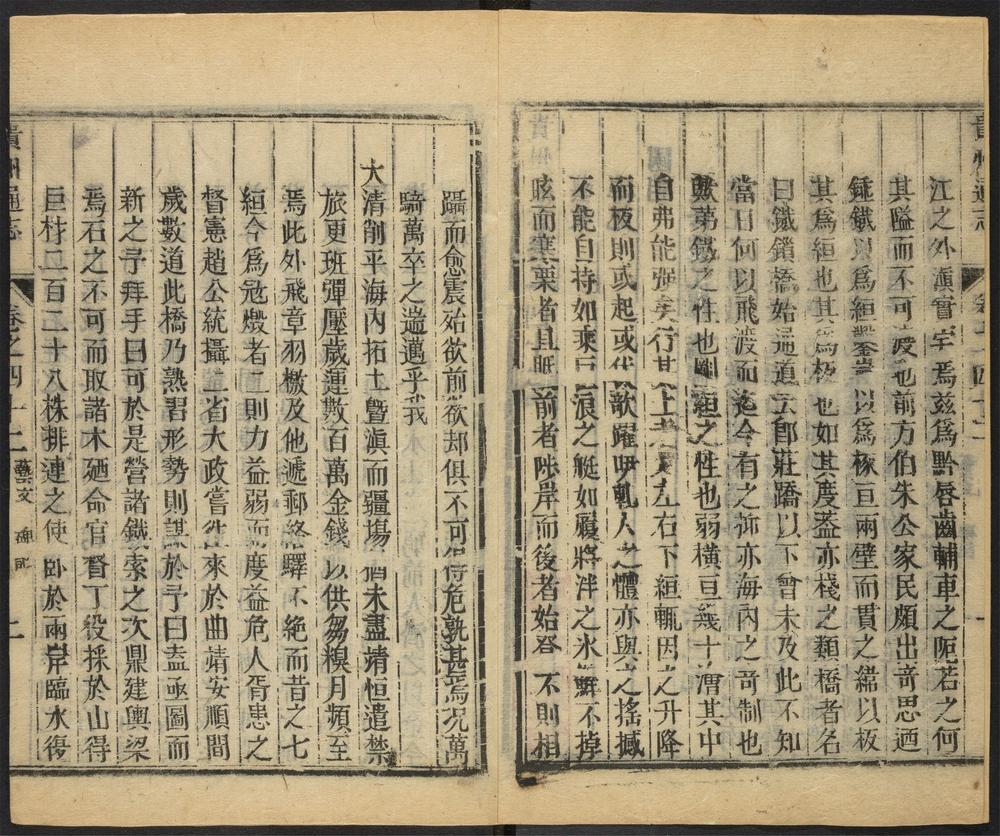 江之外滇實宇焉茲為黔唇齒輔車之阨若之何
其隘而不可渡也前方伯朱公家民頗出奇思迺
錘鐵以為絙鑿崖以為椓亘兩壁而貫之緜以板
其為絙也其為板也如其度葢亦棧之類橋者名
曰鐵鎖橋始通道云郎莊蹻以下曾未及此不知
當日何以飛渡而迄今有之亦海內之奇制也
歟第鐵之性也剛絙之性也弱橫亘幾十漕其中
自弗能强矣行其上者左右下絙輒因之升降
而板則或起或伏歌躍呼軋人之體亦與之搖撼
不能自持如乘巨浪之艇如履將泮之氷鮮不掉
眩而寒栗者且眂前者阰岸而後者始登不則相
躡而愈震殆欲前欲却俱不可得危孰甚焉况萬
騎萬卒之遄邁乎哉
大清削平海內拓土曁滇而疆塲猶未盡靖恒遣禁
旅更班彈壓歲運數百萬金錢以供芻糗月頻至
焉此外飛章羽檄及他遞郵終驛不絕而昔之七
絙今為冦燬者二則力益弱而度益危人胥患之
督憲趙公統攝二省大政嘗往來於曲靖安順間
歲數道此橋乃熟習形勢則謀於予曰盍亟圖而
新之予拜手曰可於是營諸鐵索之次鼎建輿梁
焉石之不可而取諸木廼命官督丁役採於山得
巨材二百二十八株排連之使卧於兩岸臨水復
貴州通志
卷之四十二
藝文 碑記